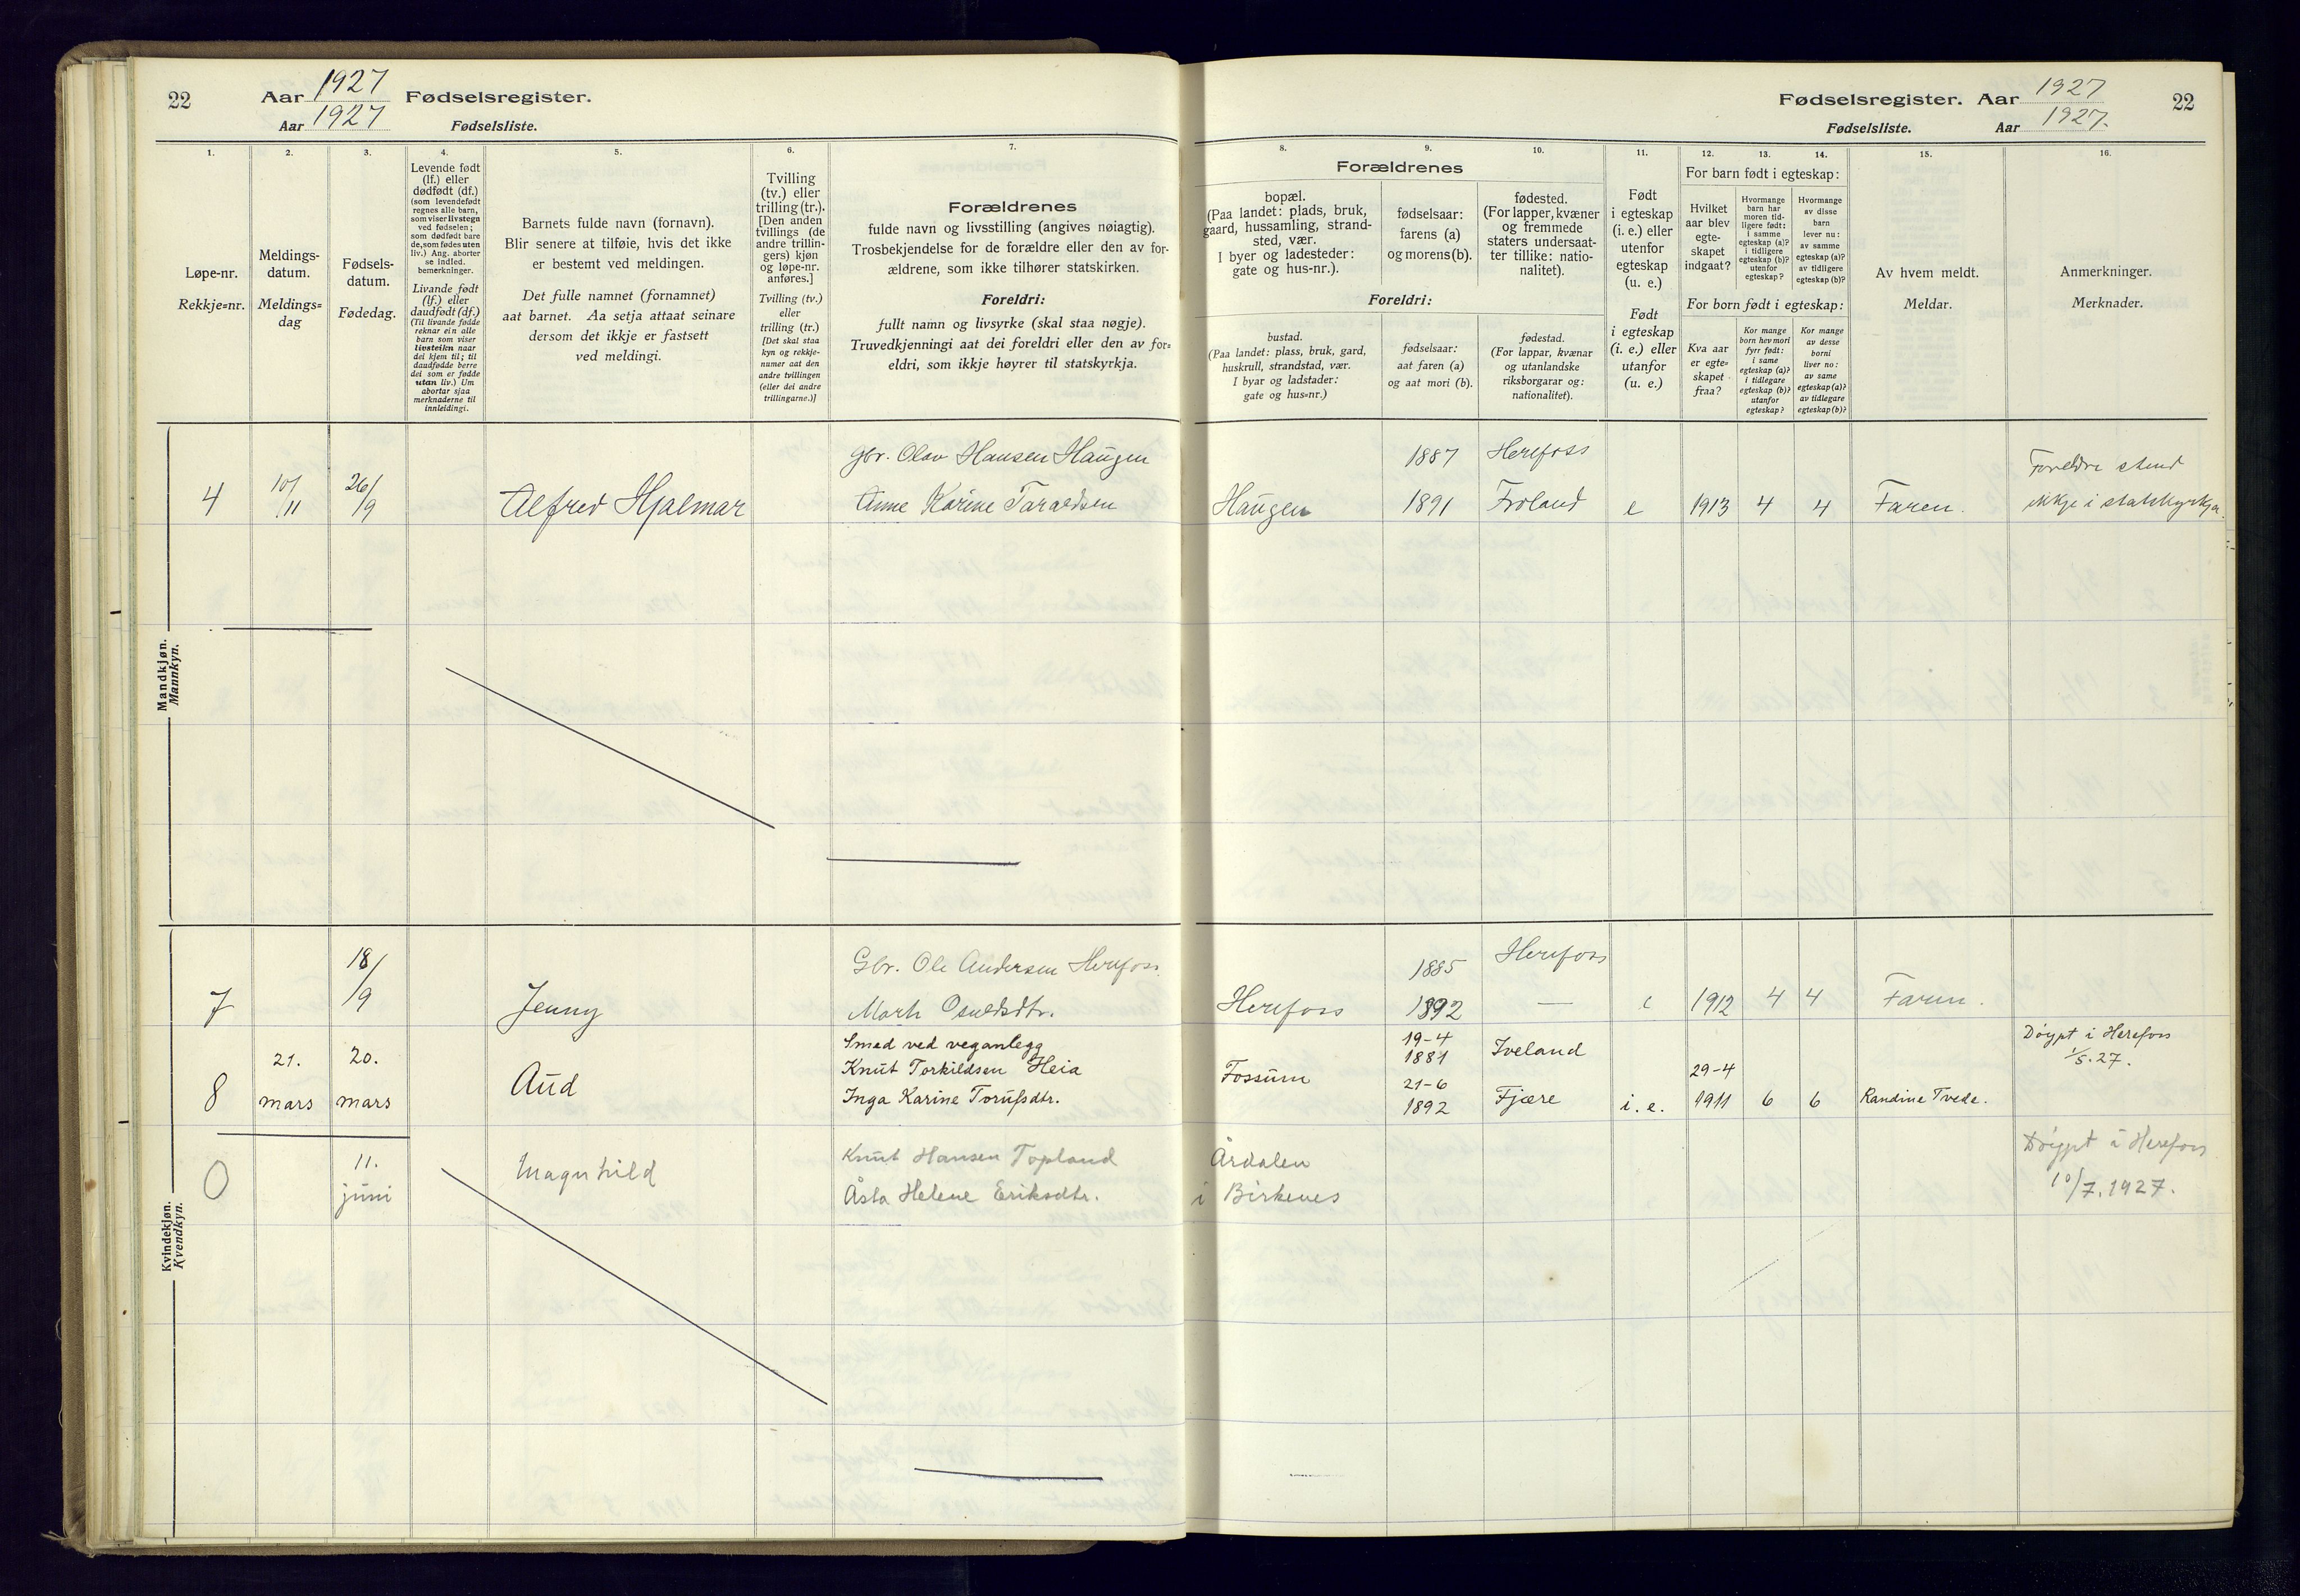 22
Aar 1927 Fødselsregister.
Aar 1927 Fødselsliste.
Fødselsregister. Aar 1927
22
Fødselsliste. Aar 1927.
1.
Løpe-nr.
Rekkje=nr.
2.
Meldings-
datum.
Meldings=
dag
3.
Fødsels-
datum.
Fødedag.
4.
Levende født
(lf.) eller
dødfødt (df.)
(som levendefødt
regnes alle barn,
som viser livstegn
ved fødselen;
som dødfødt bare
de, som fødes uten
liv.) Ang. aborter
se indled.
bemerkninger.
Livande født
(lf.) eller
daudfødt (df.)
(Til livande fødde
reknar ein alle
barn som viser
livsteikn naar
dei kjem til; til
daudfødde berre
dei som er fødde
utan liv.) Um
abortar sjaa
merknaderne til
innleidingi.
5.
Barnets fulde navn (fornavn).
Blir senere at tilføie, hvis det ikke
er bestemt ved meldingen.
Det fulle namnet (fornamnet)
aat barnet. Aa setja attaat seinare
dersom det ikkje er fastsett
ved meldingi.
6.
Tvilling
(tv.) eller
trilling (tr.).
[Den anden
tvillings (de
andre trillin-
gers) kjøn
og løpe-nr.
anføres.]
Tvilling (tv.)
eller
trilling (tr.)
[Det skal staa
kyn og rekkje-
numer aat den
andre tvillingen
(eller dei andre
trillingarne.)]
7.
Forældrenes
fulde navn og livsstilling (angives nøiagtig).
Trosbekjendelse for de forældre eller den av for-
ældrene, som ikke tilhører statskirken.
Foreldri:
fullt namn og livsyrke (skal staa nøgje).
Truvedkjenningi aat dei foreldri eller den av for=
eldri, som ikkje høyrer til statskyrkja.
Forældrenes
8.
bopæl.
(Paa landet: plads, bruk,
gaard, hussamling, strand-
sted, vær.
I byer og ladesteder:
gate og hus-nr.).
9.
fødselsaar:
farens (a)
og morens (b).
10.
fødested.
(For lapper, kvæner
og fremmede
staters undersaat-
ter tillike: natio-
nalitet).
Foreldri:
bustad.
(Paa landet: plass, bruk, gard,
huskrull, strandstad, vær.
I byar og ladstader:
gate og hus=nr.)
fødselsaar:
aat faren (a)
og aat mori (b).
fødestad.
(For lappar, kvænar
og utanlandske
riksborgarar og:
nationalitet).
11.
Født
i egteskap
(i. e.) eller
utenfor
egteskap
(u. e.)
Født
i egteskap
(i. e.) eller
utanfor
(u. e.)
For barn født i egteskap:
12.
Hvilket
aar blev
egte-
skapet
indgaat?
13.
Hvormange
barn har
moren tid-
ligere født:
i samme
egteskap (a)?
i tidligere
egteskap (b)?
utenfor
egteskap?
14.
Hvormange
av disse
barn
lever nu:
av samme
egteskap (a)?
av tidligere
egteskap (b)?
For born født i egteskap:
Kva aar
er egte-
skapet
fraa?
Kor mange
born hev mori
fyrr født:
i same
egteskap (a)?
i tidlegare
egteskap (b)?
utanfor
egteskap?
Kor mange
av desse
borni
liver no:
av same
egteskap (a)?
av tidlegare
egteskap (b)?
15.
Av hvem meldt.
Meldar.
16.
Anmerkninger.
Merknader.
Mandkjøn.
Mannkyn.
4 10/11 26/9 Alfred Hjalmar
gbr. Olav Hansen Haugen
Anne Karine Taraldsen
Haugen
1887 Herefoss
1891 Froland
e 1913 4 4 Faren.
Foreldre stend
ikkje i statskyrkja.
Kvindekjøn.
Kvendkyn.
7 18/9 Jenny
Gbr. Ole Andersen Herefoss.
Marh Osuldsdtr.
Herefoss
1885 Herefoss
1892 —
e 1912 4 4 Faren.
8 21. mars 20. mars Aud
Smed ved veganlegg
Knut Torkildsen Heia
Inga Karine Torufsdtr.
Fossum
19-4
1881 Iveland
21-6
1892 Fjære
i. e. 29-4
1911 6 6 Randine Tvede.
Døypt i Herefoss
1/5.27.
0 11. juni Magnhild
Knut Hansen Topland
Åsta Helene Eriksdtr.
Årdalen
i Birkenes
Døypt i Herefoss
10/7.1927.